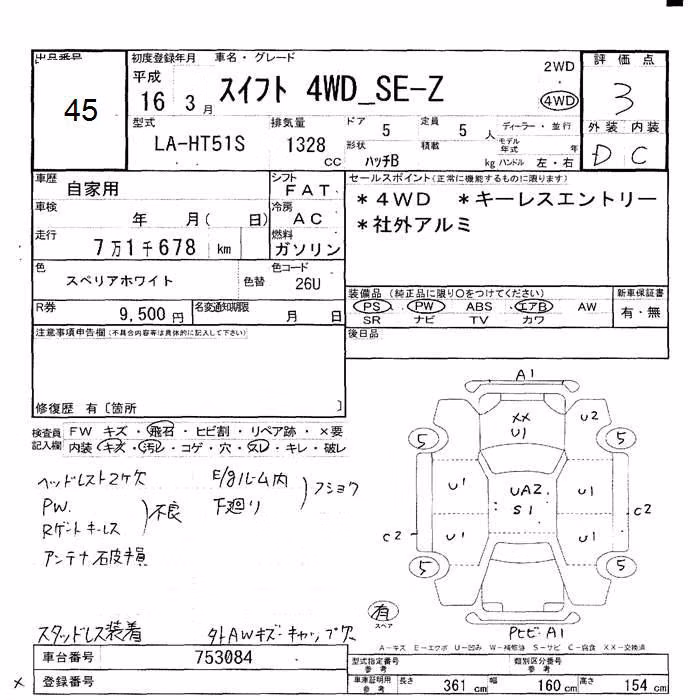 出品番号 45
初度登録年月 平成 16 3月
車名・グレード スイフト 4WD_SE-Z
2WD ・ 4WD
評価点 3
外装 内装
D C
型式 LA-HT51S
排気量 1328 CC
ドア 5
定員 5 人
ディーラー・並行
形状 ハッチB
積載 kg
モデル年式 年
ハンドル 左・右
車歴 自家用
シフト FAT
車検 年 月( 日)
冷房 AC
走行 7万1千678 km
燃料 ガソリン
色 スペリアホワイト
色替
色コード 26U
R券 9,500円
名変通知期限 月 日
セールスポイント(正常に機能するものに限ります)
*4WD *キーレスエントリー
*社外アルミ
装備品 (純正品に限り○をつけてください)
PS ・ PW ・ ABS ・ エアB ・ AW
SR ナビ TV カワ
新車保証書
有・無
後日品
注意事項申告欄(不具合内容等は具体的に記入して下さい)
修復歴 有〔箇所 〕
検査員記入欄
FW キズ・飛石・ヒビ割・リペア跡・×要
内装・キズ・汚レ・コゲ・穴・スレ・キレ・破レ
ヘッドレスト2ケ欠
PW.
Rゲートキーレス
)不良
アンテナ破損
E/gルーム内
下廻り
)フショク
スタッドレス装着
外AWキズ・キャップ欠
A1
XX
U1
U2
5
5
U1
UA2
S1
U1
C2
C2
U1
U1
5
5
有
スペア
PヒビA1
A-キズ E-エクボ U-凹み W-補修跡 S-サビ C-腐食 XX-交換済
車台番号 753084
登録番号
×
型式指定番号 参考
類別区分番号 参考
車庫証明用 参考
長さ 361 cm
幅 160 cm
高さ 154 cm